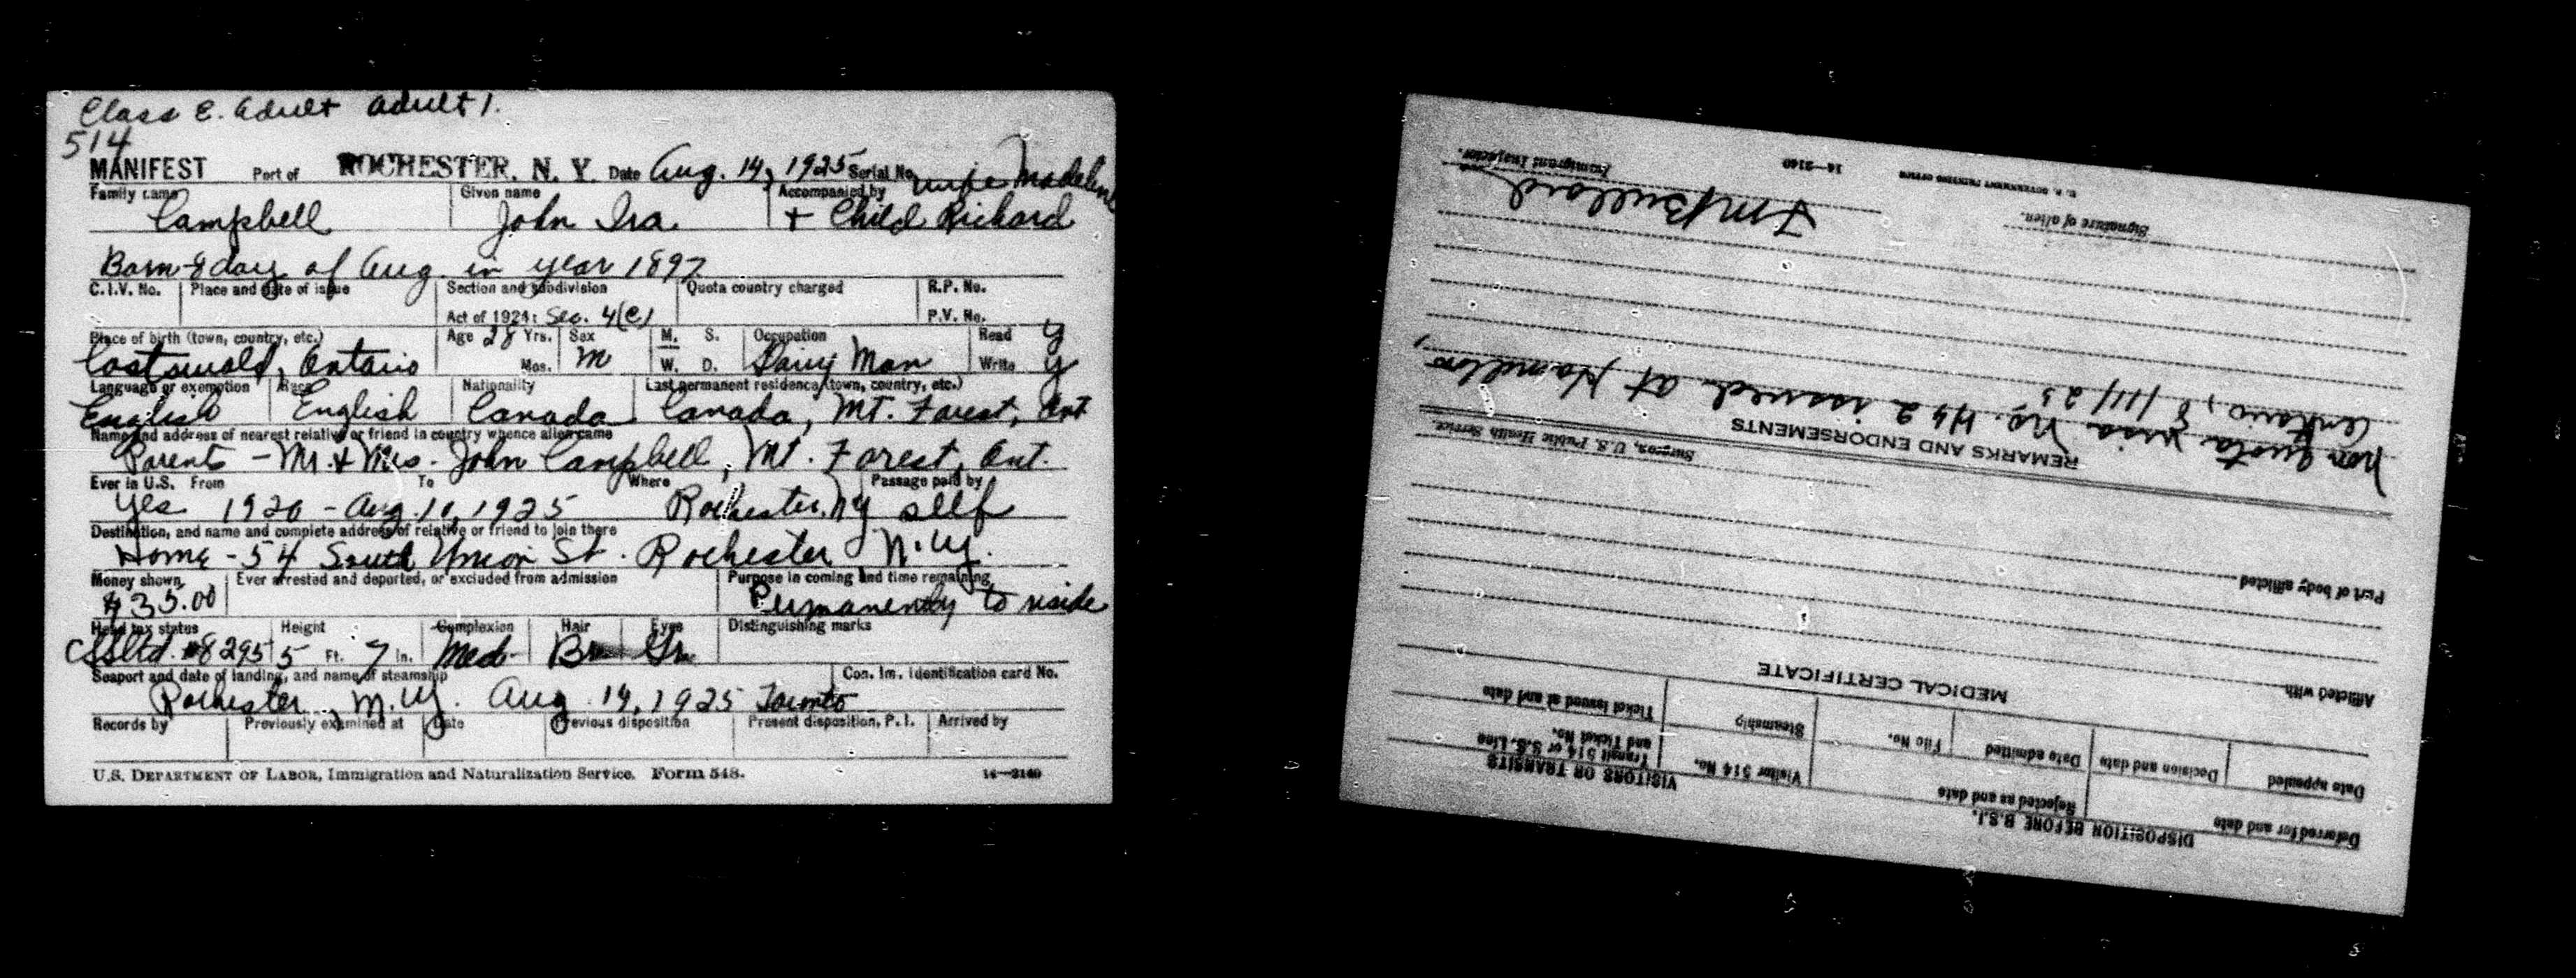 Class E. adult adult 1.
514
MANIFEST Port of ROCHESTER, N. Y. Date Aug. 14, 1925 Serial No. wife Madeline
Family name Given name Accompanied by
Campbell John Ira + Child Richard
Born - 8 day of Aug. in year 1897
C.I.V. No. Place and date of issue Section and subdivision Quota country charged R.P. No.
Act of 1924: Sec. 4(c) P.V. No.
Place of birth (town, country, etc.) Age 28 Yrs. Sex M. S. Occupation Read y
Coatswald, Ontario Mos. M W. D. Dairy Man Write y
Language or exemption Race Nationality Last permanent residence (town, country, etc.)
English English Canada Canada, Mt. Forest, Ont
Name and address of nearest relative or friend in country whence alien came
Parents - Mr. & Mrs. John Campbell, Mt. Forest, Ont.
Ever in U.S. From To Where Passage paid by
Yes 1920 - Aug. 10, 1925 Rochester, NY self
Destination, and name and complete address of relative or friend to join there
Home - 54 South Union St. Rochester N.Y.
Money shown Ever arrested and deported, or excluded from admission Purpose in coming and time remaining
$35.00 Permanently to reside
Head tax status Height Complexion Hair Eyes Distinguishing marks
#8295 5 Ft. 7 In. Med. Br Gr
Seaport and date of landing, and name of steamship Con. Im. Identification card No.
Rochester, N.Y. Aug. 14, 1925 Toronto
Records by Previously examined at Date Previous disposition Present disposition, P. I. Arrived by
U.S. DEPARTMENT OF LABOR, Immigration and Naturalization Service. Form 548. 14—2140
DISPOSITION BEFORE B.S.I.
Deferred for and date Rejected as and date
Date appealed Decision and date Date admitted File No.
VISITORS OR TRANSITS
Visitor 514 No. Transit 514 or S.S. Line and Ticket No.
Steamship Ticket issued at and date
MEDICAL CERTIFICATE
Afflicted with
Part of body afflicted
Surgeon, U.S. Public Health Service.
REMARKS AND ENDORSEMENTS
Non quota visa No. 462 issued at Hamilton,
Ontario, 8/11/25
Signature of alien.
Bullard
Immigrant Inspector.
U. S. GOVERNMENT PRINTING OFFICE 14—2140